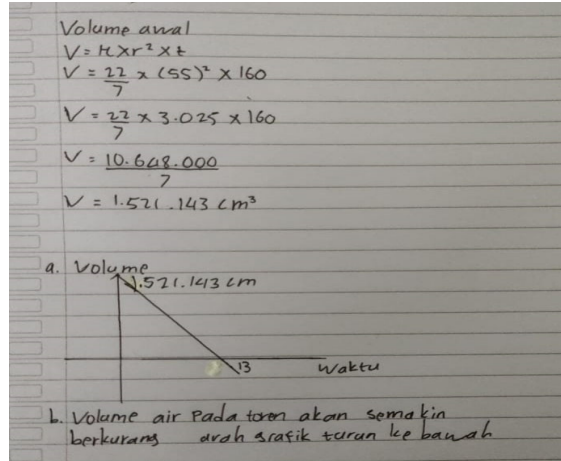 Volume awal
V = π x r² x t
V = 22/7 x (55)² x 160
V = 22/7 x 3.025 x 160
V = 10.648.000/7
V = 1.521.143 cm³
a. Volume
1.521.143 cm
13
Waktu
b. Volume air Pada toren akan semakin
berkurang arah grafik turun ke bawah